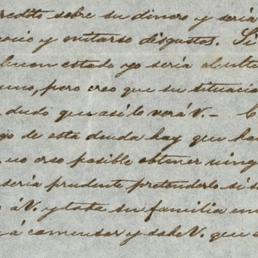 redito sobre su dinero y seria
ocio y evitarse disgustos. Si
buen estado yo seria el ulti
uno, pero creo que su situacio
dudo que asi lo verá V. –
go de esta deuda hay que ha
no creo posible obtener ning
seria prudente pretenderlo si s
á V. y toda su familia un
á comenzar y sabe V. que